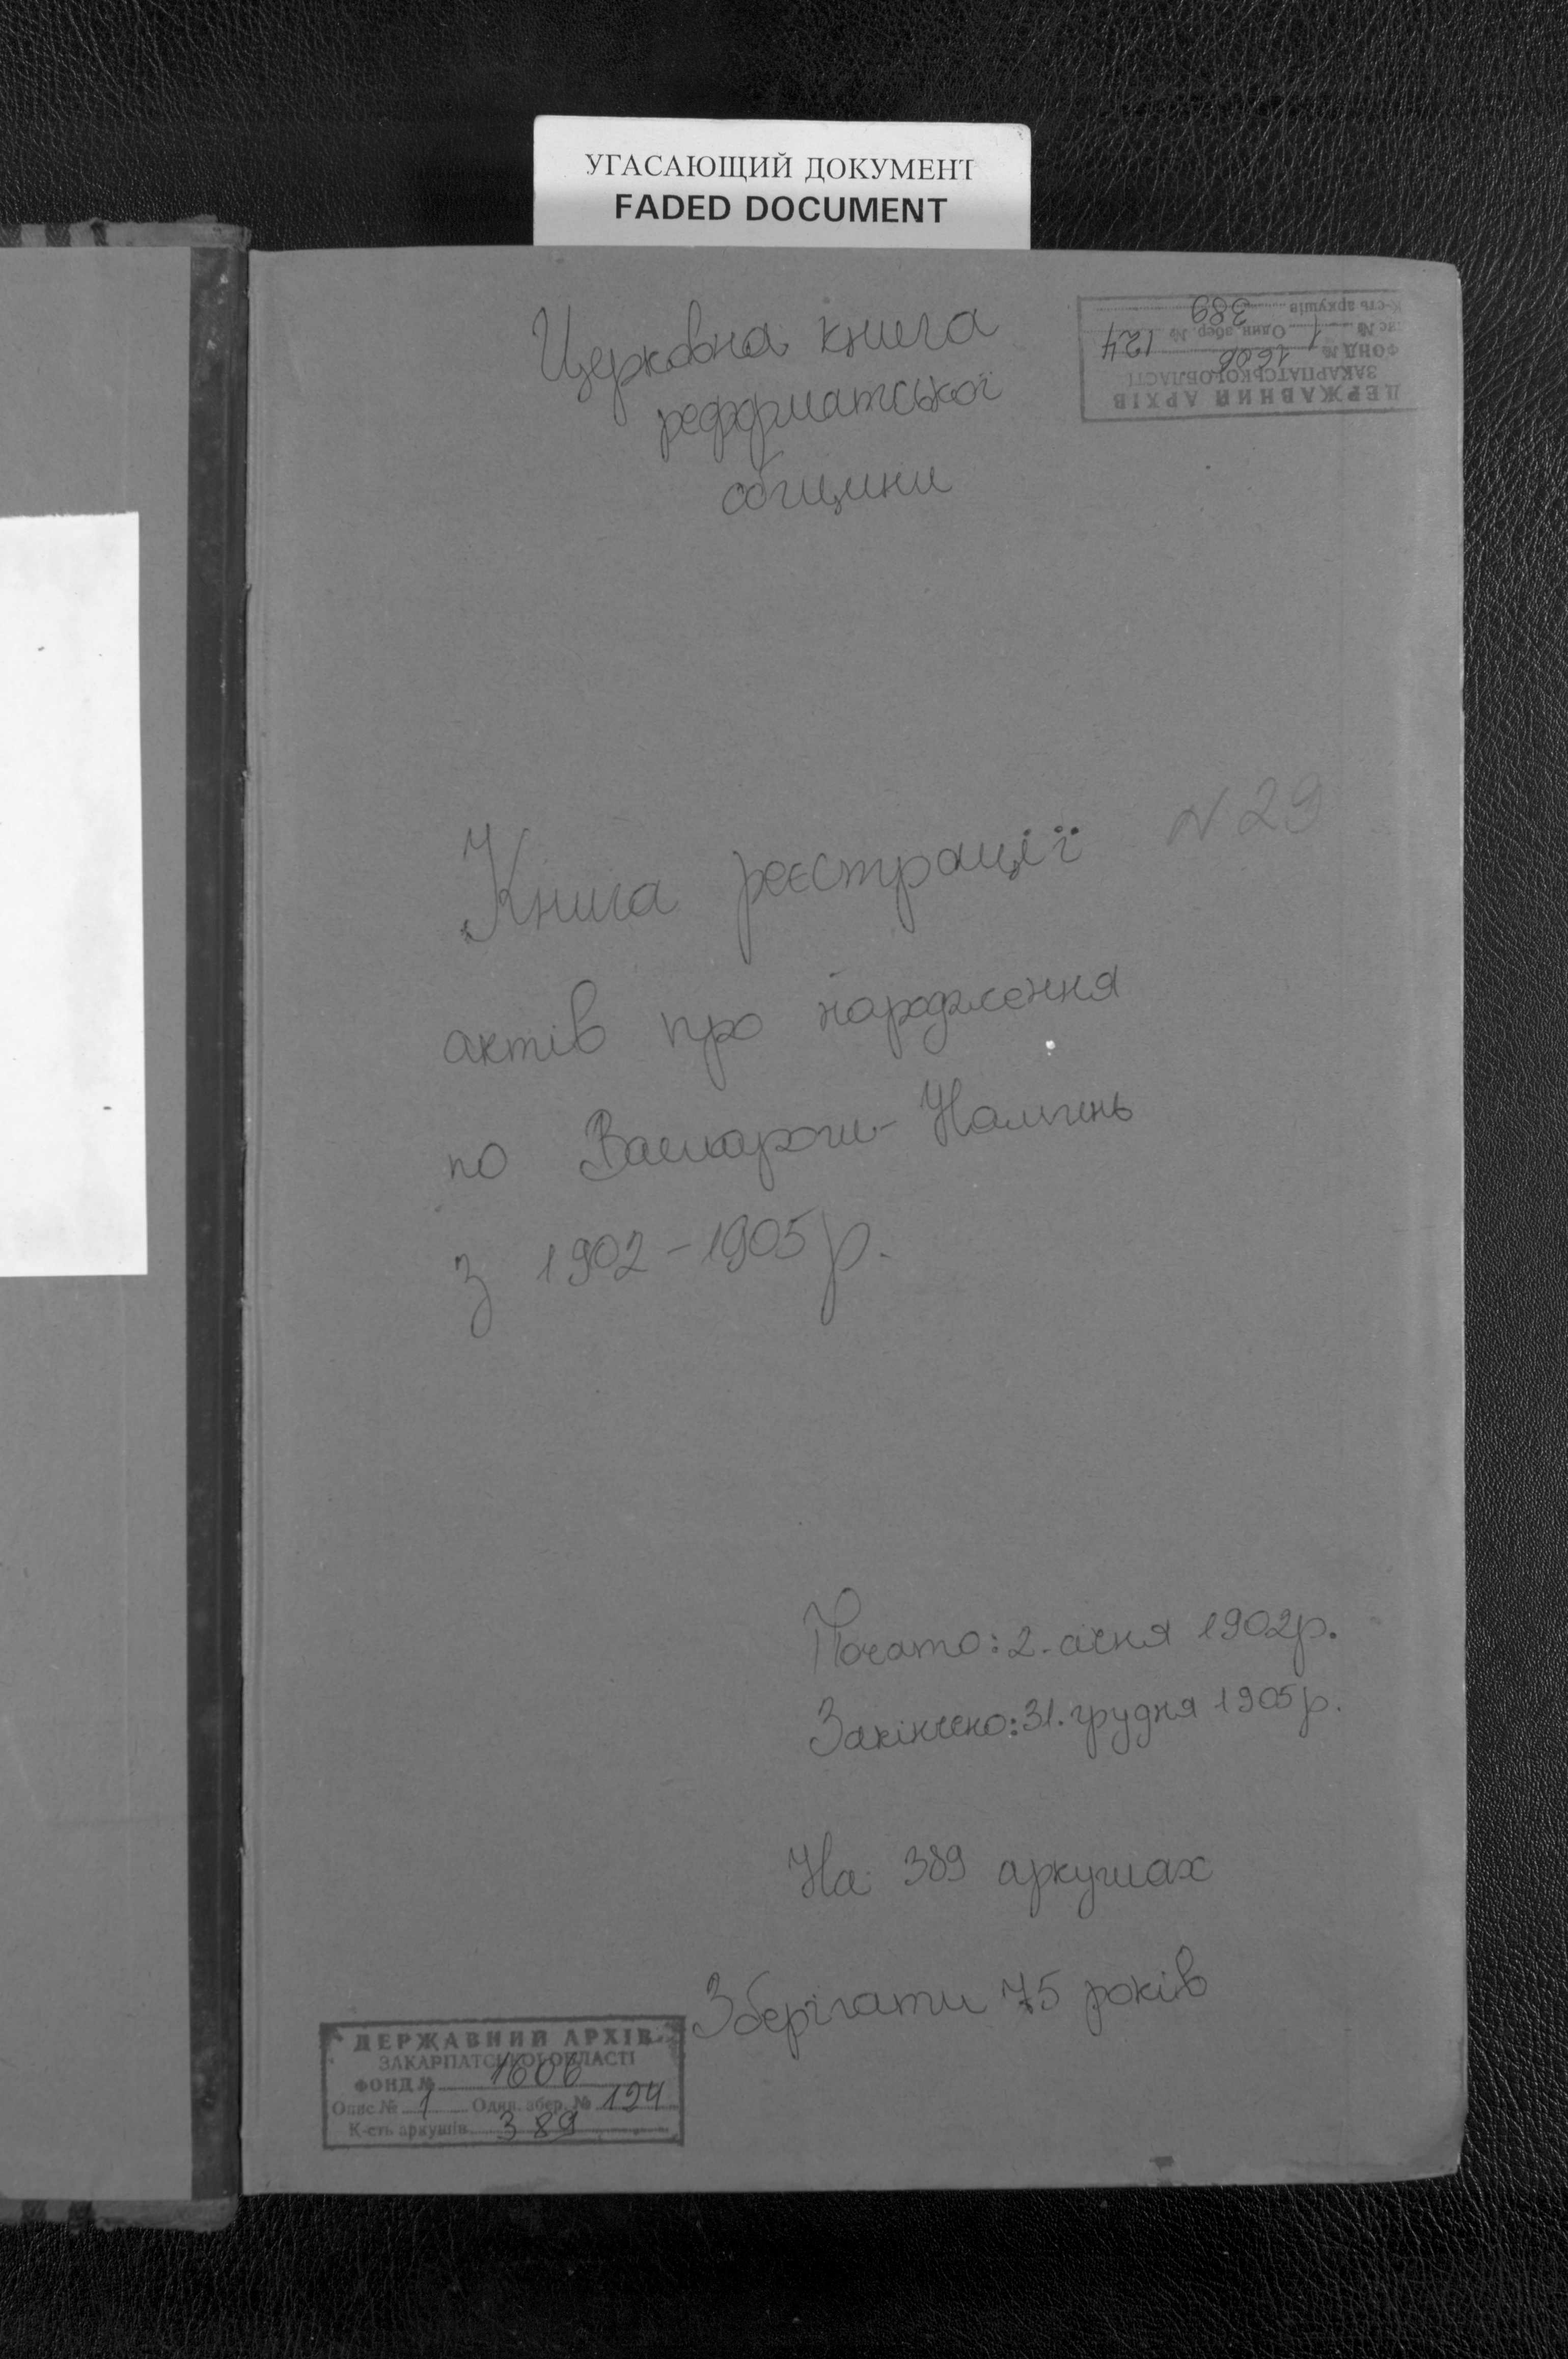 УГАСАЮЩИЙ ДОКУМЕНТ
FADED DOCUMENT
Церковна книга
реформатської
общини
ДЕРЖАВНИЙ АРХІВ
ЗАКАРПАТСЬКОЇ ОБЛАСТІ
ФОНД № 1606
Опис № 1 Один. збер. № 124
К-сть аркушів 389
Книга реєстрації N 29
актів про народження
по Вашарош-Намень
з 1902-1905 р.
Почато: 2. січня 1902р.
Закінчено: 31. грудня 1905р.
На 389 аркушах
Зберігати 75 років
ДЕРЖАВНИЙ АРХІВ
ЗАКАРПАТСЬКОЇ ОБЛАСТІ
ФОНД № 1606
Опис № 1 Один. збер. № 124
К-сть аркушів 389